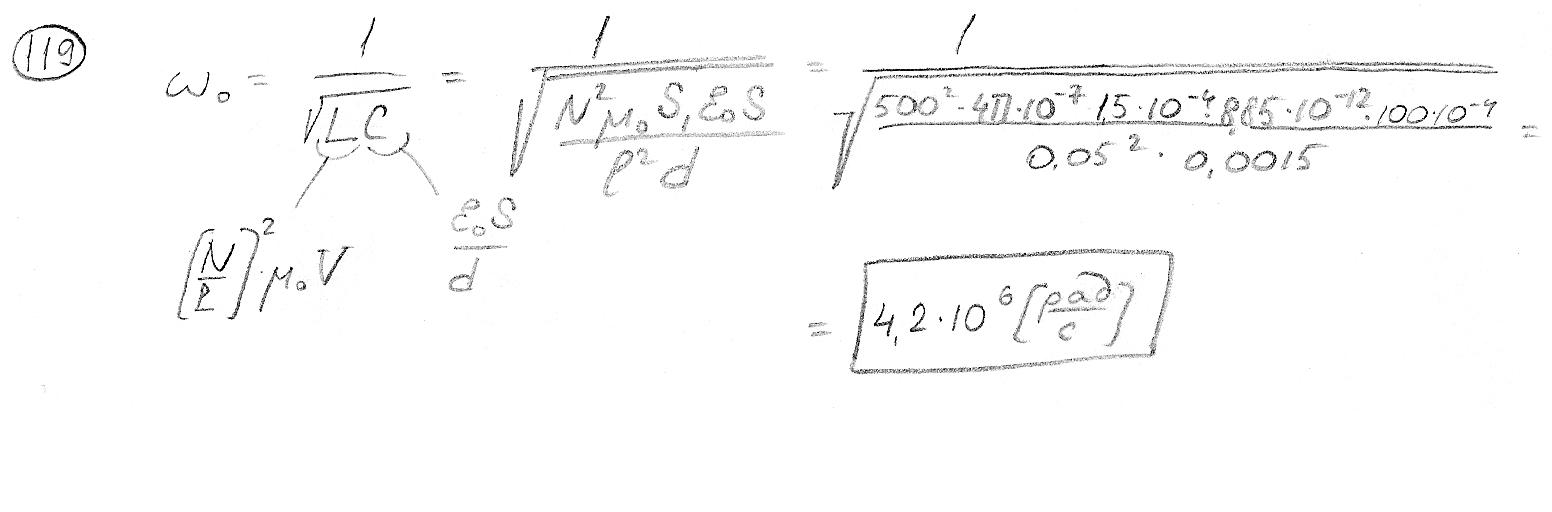 119
ω₀ = 1/√(LC) = 1/√(N²μ₀S₁ε₀S/(ℓ²d)) = 1/√(500²·4π·10⁻⁷·1,5·10⁻⁴·8,85·10⁻¹²·100·10⁻⁴/(0,05²·0,0015)) =
[N/ℓ]²·μ₀V ε₀S/d
= 4,2·10⁶ [рад/с]